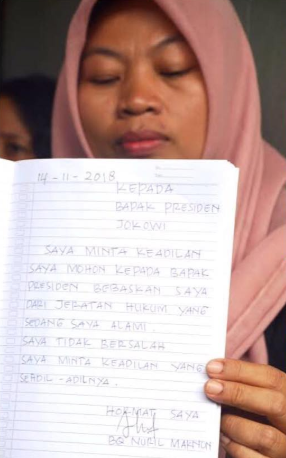 14-11-2018
KEPADA
BAPAK PRESIDEN
JOKOWI
SAYA MINTA KEADILAN
SAYA MOHON KEPADA BAPAK
PRESIDEN BEBASKAN SAYA
DARI JERATAN HUKUM YANG
SEDANG SAYA ALAMI.
SAYA TIDAK BERSALAH
SAYA MINTA KEADILAN YANG
SEADIL-ADILNYA.
HORMAT SAYA
BQ NURIL MAKNUN